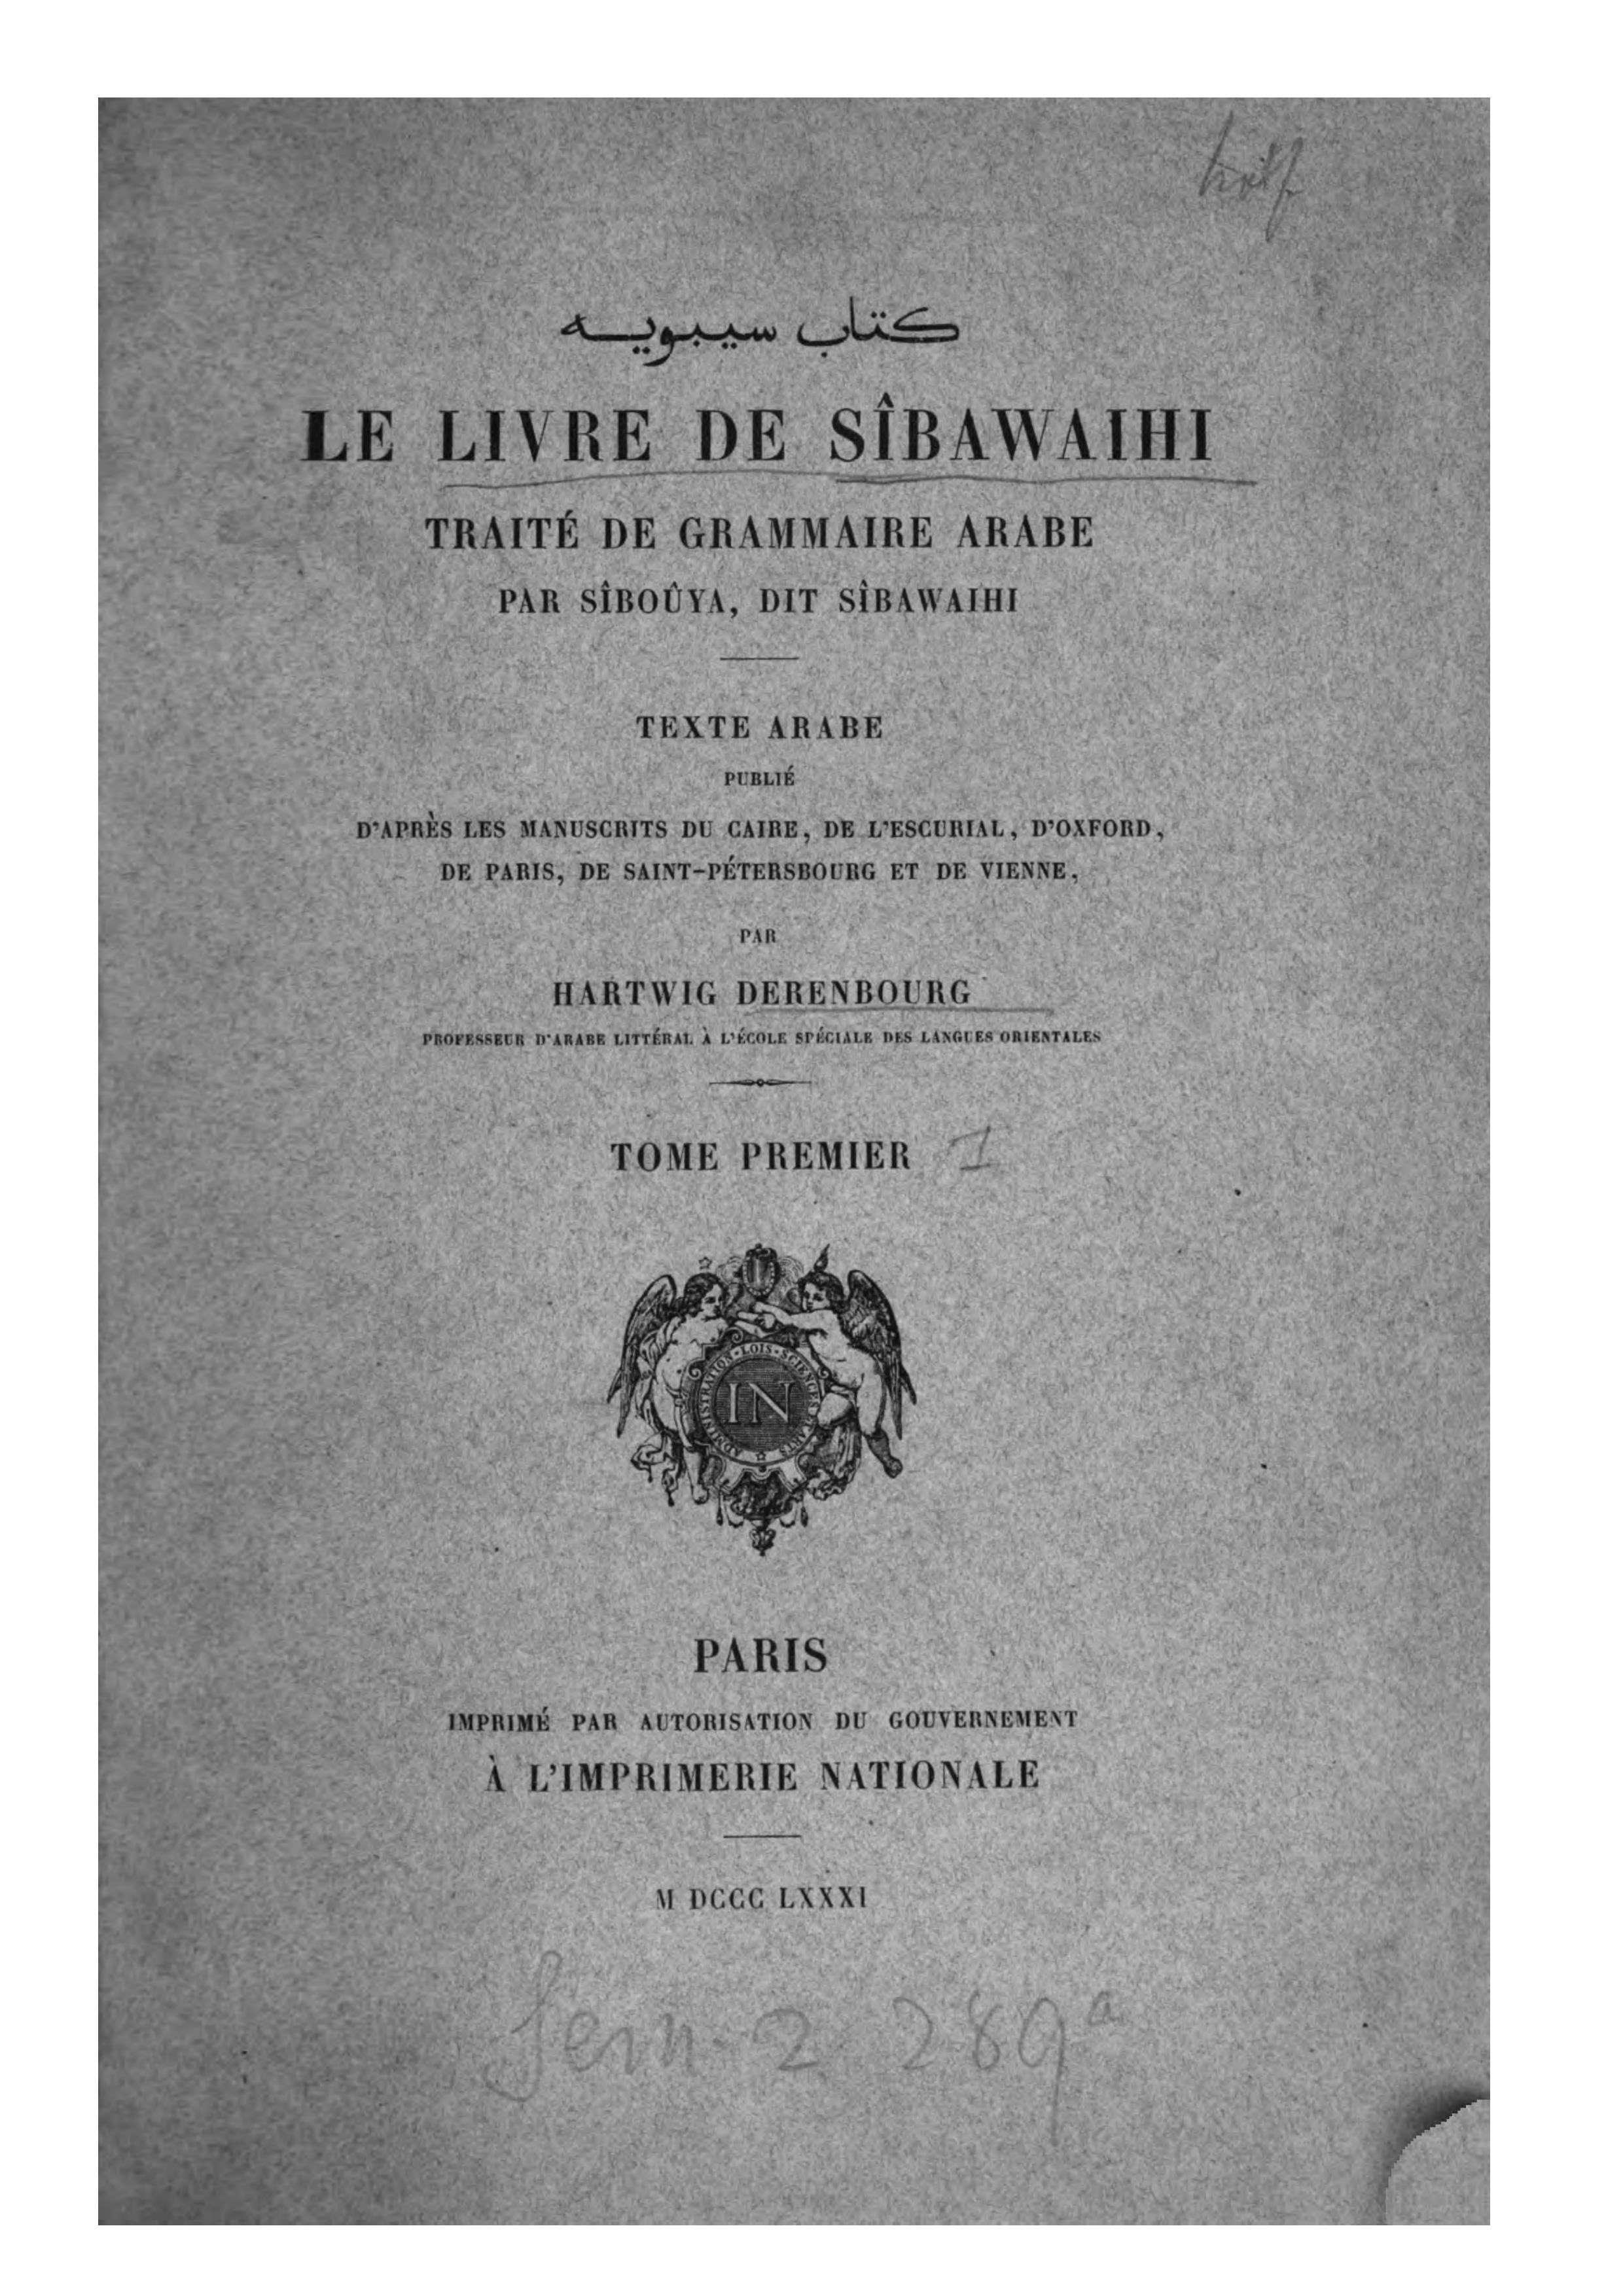 كتاب سيبويه
LE LIVRE DE SÎBAWAIHI
TRAITÉ DE GRAMMAIRE ARABE
PAR SÎBOÛYA, DIT SÎBAWAIHI
TEXTE ARABE
PUBLIÉ
D'APRÈS LES MANUSCRITS DU CAIRE, DE L'ESCURIAL, D'OXFORD,
DE PARIS, DE SAINT-PÉTERSBOURG ET DE VIENNE,
PAR
HARTWIG DERENBOURG
PROFESSEUR D'ARABE LITTÉRAL À L'ÉCOLE SPÉCIALE DES LANGUES ORIENTALES
TOME PREMIER I
ADMINISTRATION · LOIS · SCIENCES ARTS
IN
PARIS
IMPRIMÉ PAR AUTORISATION DU GOUVERNEMENT
À L'IMPRIMERIE NATIONALE
M DCCC LXXXI
2 289a